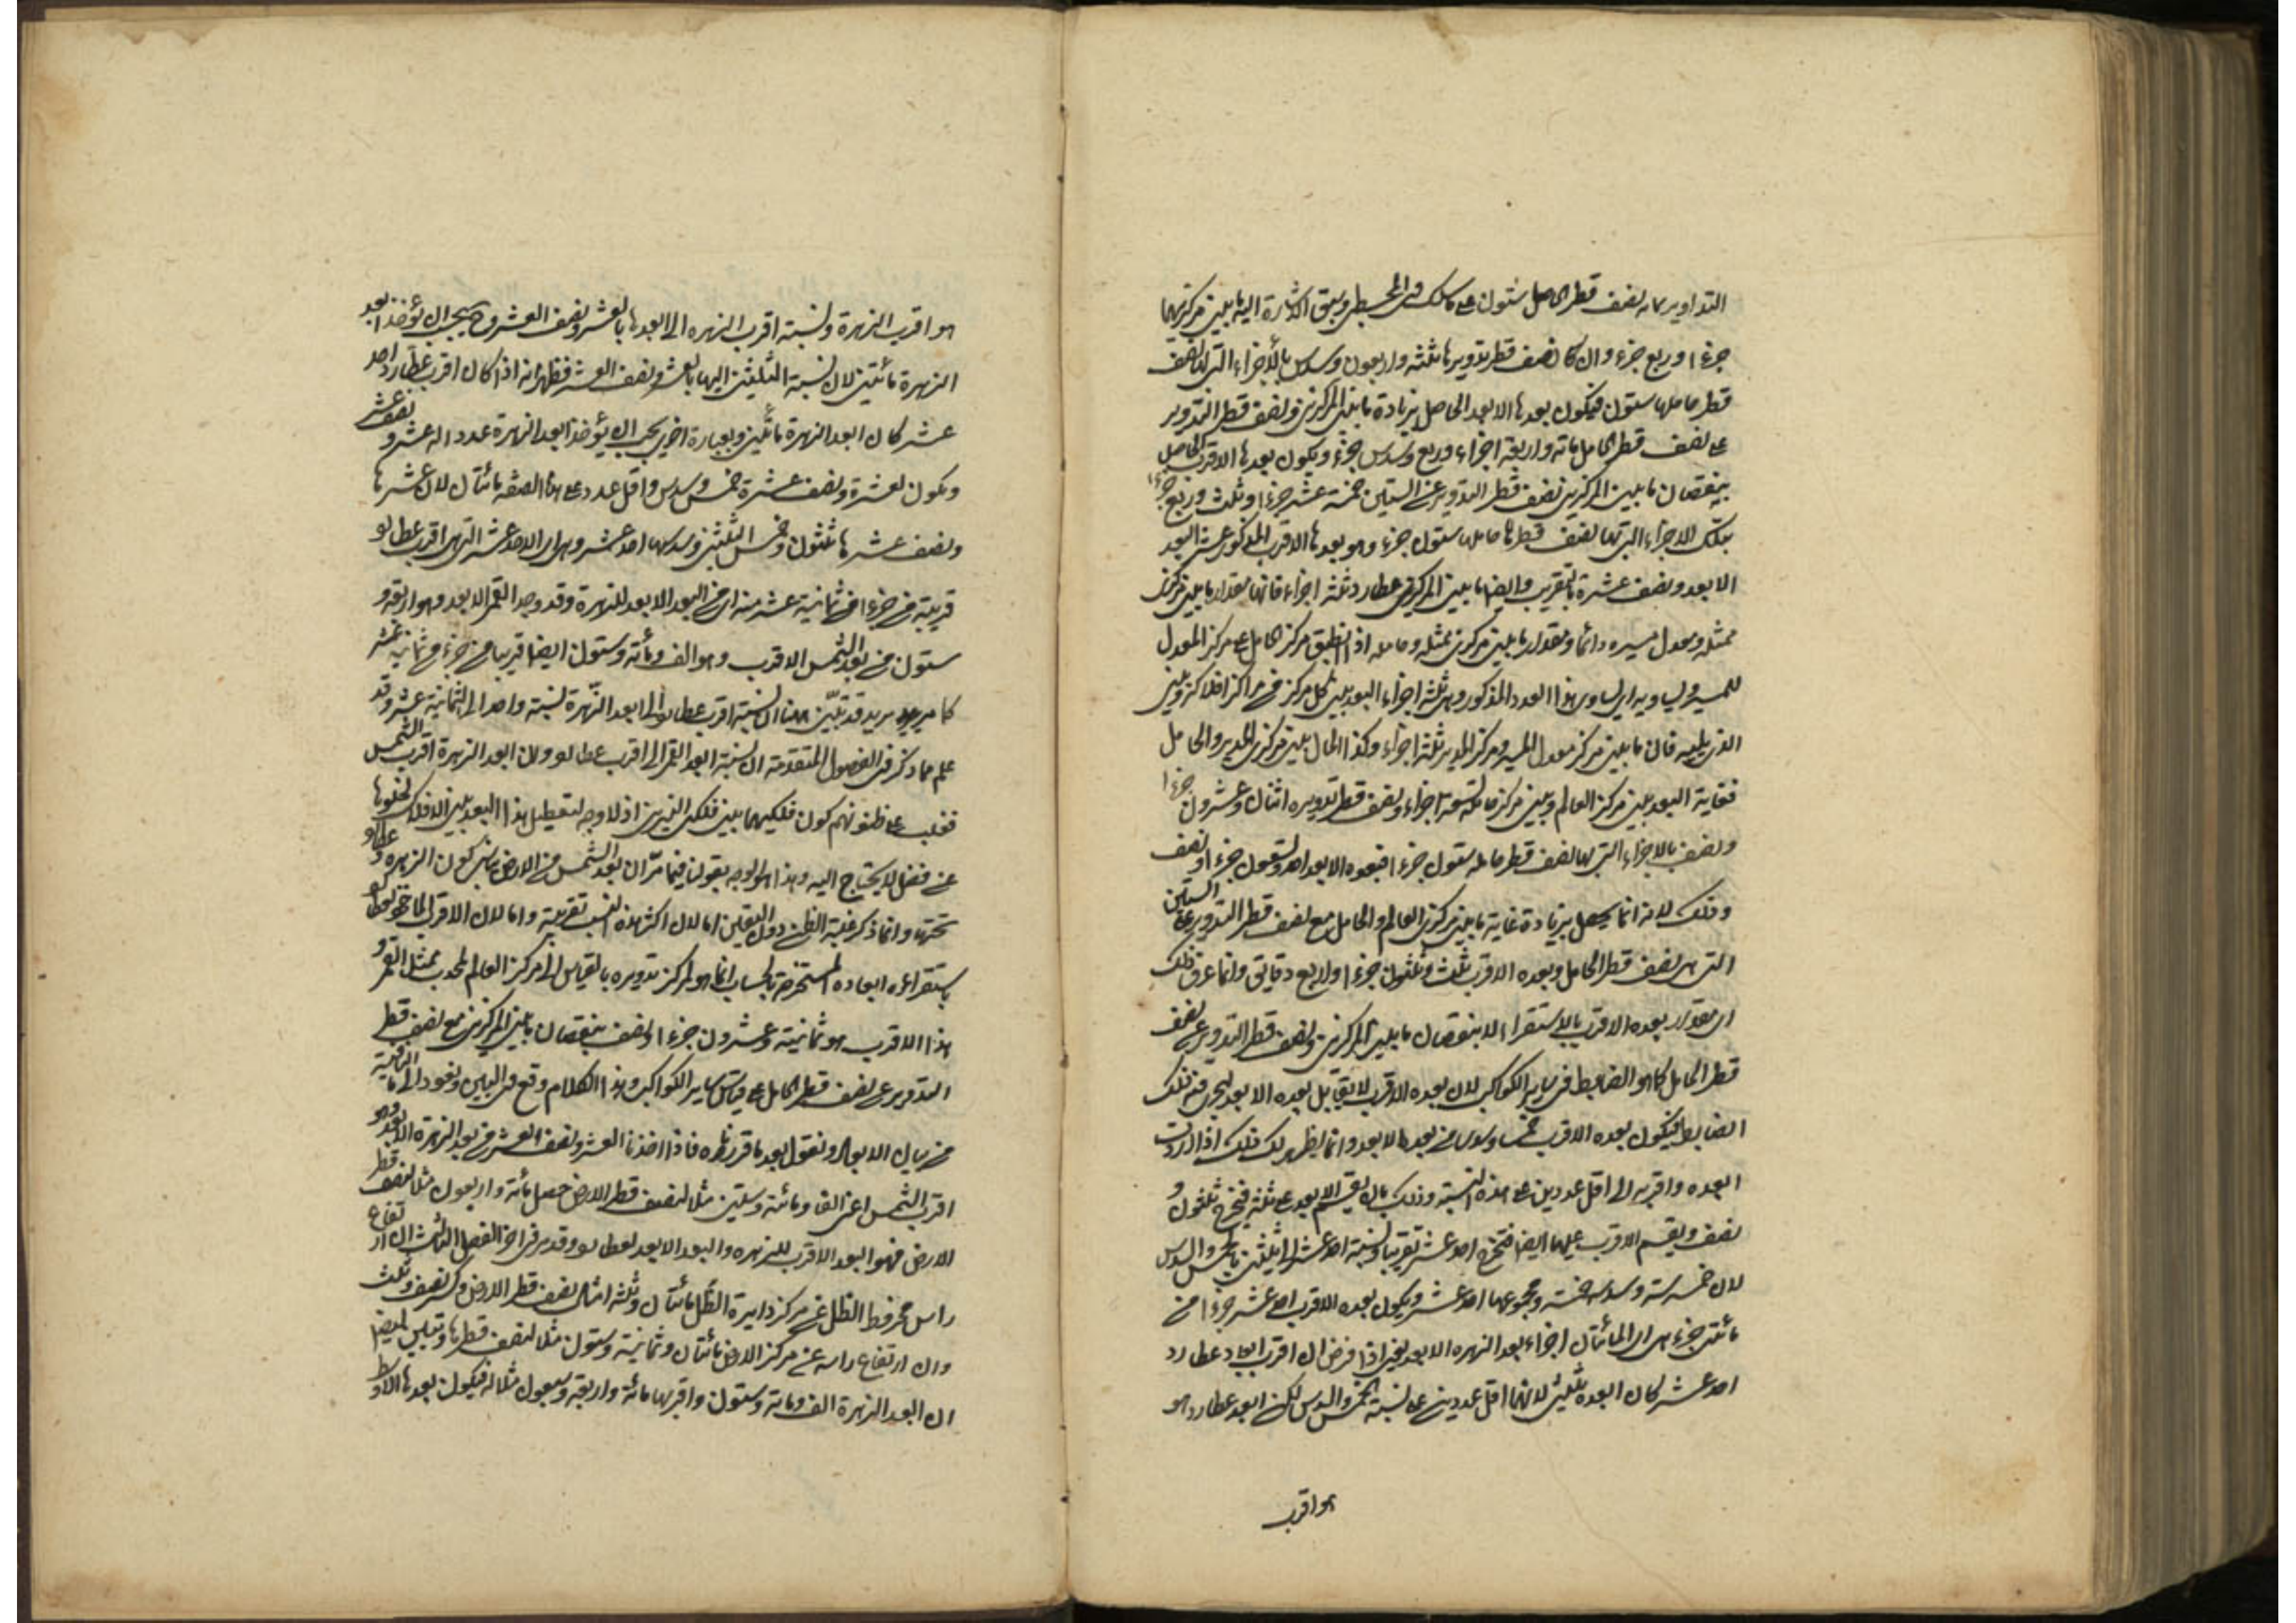 التداوير مما به نصف قطر الحامل ستون على ما سلك في المجسطي وسبق الاشارة اليه ما بين مركزيهما
جزءا وربع جزء وان كان نصف قطر تدويرها ثلثة واربعون وسدس بالأجزاء التي لها نصف
قطر حاملها ستون فيكون بعدها الابعد الحاصل بزيادة ما بين المركزين ونصف قطر التدوير
على نصف قطر الحامل مائة واربعة اجزاء وربع وسدس جزء ويكون بعدها الاقرب الحاصل
بنقصان ما بين المركزين نصف قطر التدوير عن الستين خمسة عشر جزءا وثلث وربع جزء
بتلك الاجزاء التي بها نصف قطر حاملها ستون جزء وهو بعدها الاقرب المذكور عشر البعد
الابعد ونصف عشره بالتقريب وايضا ما بين المركزين عطارد ثلثة اجزاء فانها مقدار ما بين مركز
ممثله ومعدل مسيره دائما ومقدار ما بين مركزي ممثله وحامله اذا انطبق مركز الحامل على مركز المعدل
للمسير ويساويه اي يساوي هذا العدد المذكور وهي ثلثة اجزاء البعد بين كل مركز من مراكز افلاكه وبين
الذي يليه فان ما بين مركز معدل المسير ومركز المدير ثلثة اجزاء وكذا الحال بين مركزي المدير والحامل
فغاية البعد بين مركز العالم وبين مركز حامله تسعة اجزاء ونصف قطر تدويره اثنان وعشرون جزءا
ونصف بالاجزاء التي بها نصف قطر حامله ستون جزء فبعده الابعد احد وتسعون جزءا ونصف
وذلك لانه انما يحصل بزيادة غاية ما بين مركزي العالم والحامل مع نصف قطر التدوير على الستين
التي هي نصف قطر الحامل وبعده الاقرب ثلث وثلثون جزءا واربع دقايق وانما عرف ذلك
اي مقدار بعده الاقرب بالاستقراء لا بنقصان ما بين المركزين ونصف قطر التدوير عن نصف
قطر الحامل كما هو الضابط في ساير الكواكب لان بعده الاقرب لا يقابل بعده الابعد ليجري فيه ذلك
الضابط فيكون بعده الاقرب خمسا وسدسا من بعده الابعد وانما يظهر لك ذلك اذا رددت
ابعده واقربه الى اقل عددين على هذه النسبة وذلك بان يقسم الابعد على ثلثة فيخرج ثلثون و
نصف ويقسم الاقرب عليها ايضا فيخرج احد عشر تقريبا ونسبة احد عشر الى الثلثين بالخمس والسدس
لان خمسه ستة وسدسه خمسة ومجموعهما احد عشر ويكون بعده الاقرب احد عشر جزءا من
مائتي جزء هي اي المائتان اجزاء بعد الزهره الابعد يعني اذا فرض ان اقرب ابعاد عطارد
احد عشر كان ابعده ثلثين لانهما اقل عددين على نسبة الخمس والسدس لكن ابعد عطارد هو
هو اقرب
هو اقرب الزهرة ونسبة اقرب الزهره الى ابعدها بالعشر ونصف العشر فيجب ان يؤخذ ابعد
الزهرة مائتين لان نسبة الثلثين اليها بالعشر ونصف العشر فظهر انه اذا كان اقرب عطارد احد
عشر كان ابعد الزهرة مائتين وبعبارة اخرى يجب ان يؤخذ ابعد الزهرة عدد اله عشر ونصف عشر
ويكون لعشره ونصف عشره خمس وسدس واقل عدد على هذه الصفة مائتان لان عشرها
ونصف عشرها ثلثون وخمس الثلثين وسدسها احد عشر وهي اي الاحد عشر التي هي اقرب عطارد
قريبة من جزء من ثمانية عشر منه اي من البعد الابعد للزهرة وقد وجد القمر الابعد وهو اربعة و
ستون من بعد الشمس الاقرب وهو الف ومائة وستون ايضا قريبا من جزء من ثمانية عشر
كما مر يريد قد تبين هنا ان نسبة اقرب عطارد الى ابعد الزهرة نسبة واحد الى الثمانية عشر وقد
علم مما ذكر في الفصول المتقدمة ان نسبة ابعد القمر الى اقرب عطارد وبين ابعد الزهرة اقرب الشمس
فغلب على ظنونهم كون فلكيهما بين فلكي النيرين اذ لا وجه لتعطيل هذا البعد بين الافلاك لخلوها
عن فضل لا يحتاج اليه وهذا هو الوجه بقوله فيما مر ان بعد الشمس من الارض يناسب كون الزهرة وعطارد
تحتها وانما ذكر غلبة الظن دون اليقين اما لان اكثر هذه النسب تقريبية واما لان الاقرب الماخوذ لعطارد
باستقراء ابعاده المستخرجة بالحساب انما هو لمركز تدويره بالقياس الى مركز العالم لمحدب ممثل القمر و
هذا الاقرب هو ثمانية وعشرون جزءا ونصف بنقصان ما بين المركزين مع نصف قطر
التدوير عن نصف قطر الحامل على قياس ساير الكواكب وهذا الكلام وقع في البين ونعود الى ما فيه
من بيان الابعاد ونقول بعد ما قررناه فاذا اخذنا العشر ونصف العشر من بعد الزهرة الابعد وهو
اقرب الشمس اعني الفا ومائة وستين مثلا لنصف قطر الارض حصل مائة واربعون مثلا لنصف قطر
الارض فهو البعد الاقرب للزهره والبعد الابعد لعطارد وقد مر في اخر الفصل الثالث ان ارتفاع
راس مخروط الظل عن مركز دايرة الظل مائتان وثلثة امثال نصف قطر الارض وكسر نصف وثلث
وان ارتفاع راسه عن مركز الارض مائتان وثمانية وستون مثلا لنصف قطرها وتبين ايضا
ان ابعد الزهرة الف ومائة وستون واقربها مائة واربعة وسبعون مثلا له فيكون بعدها الاوسط